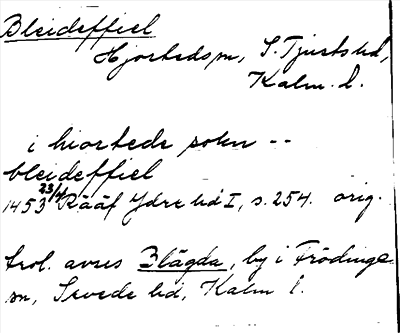 Bleideffiel
Hjorteds sn, S. Tjusts hd,
Kalm. l.
i hiortede sokn --
bleideffiel
1453 23/4 Rääf Ydre hd I, s. 254. orig.
trol. avses Blägda, by i Frödinge
sn, Sevede hd, Kalm l.